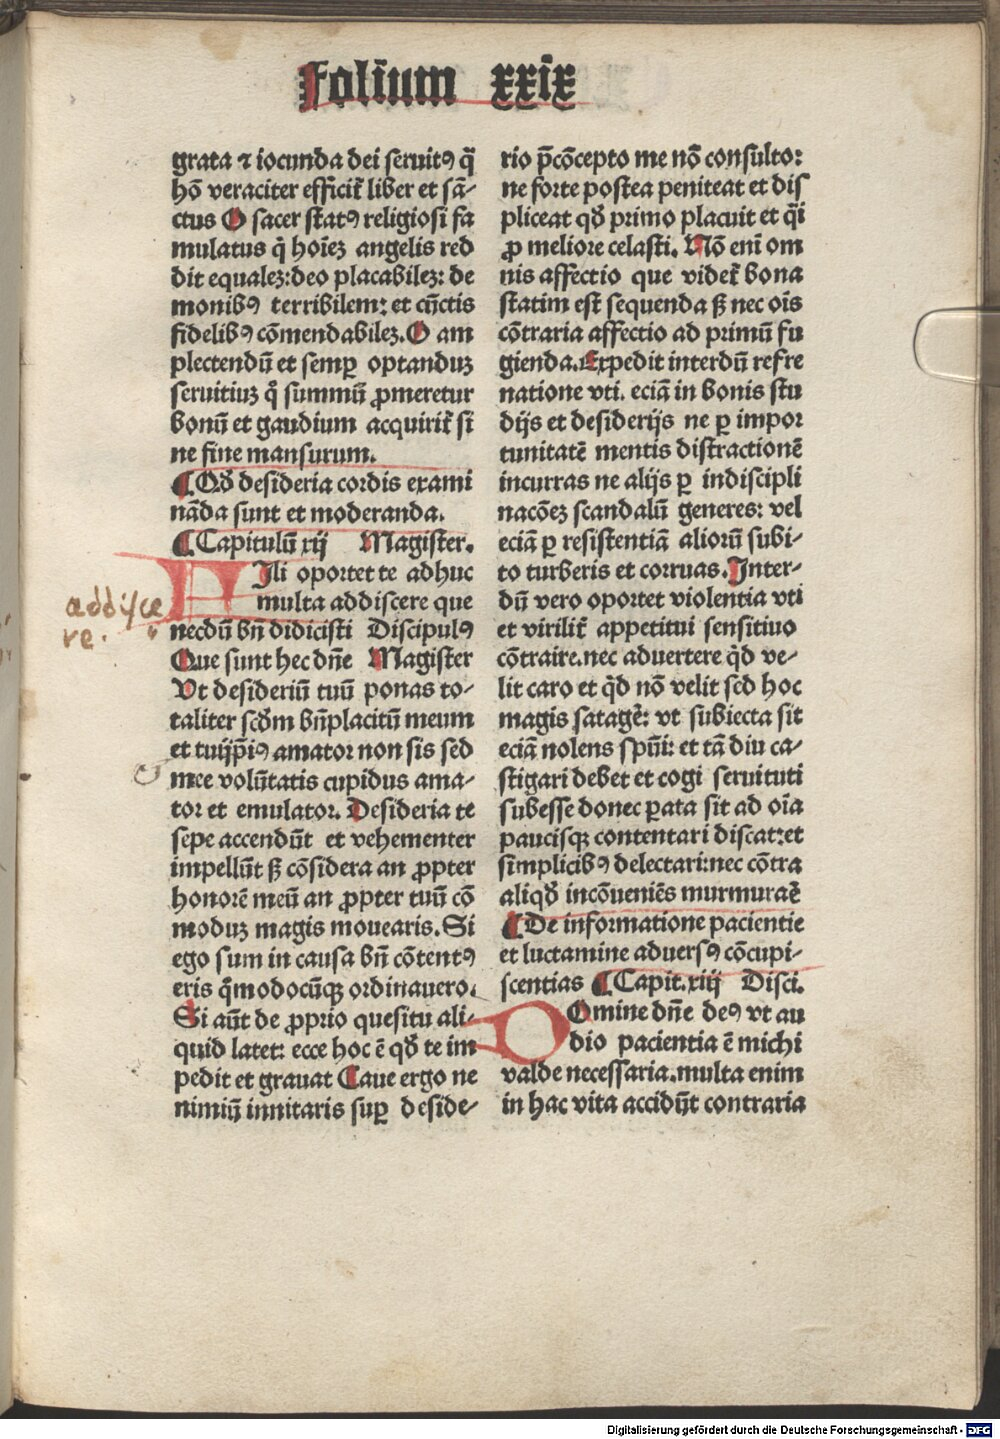 Folium xxix
grata ⁊ iocunda dei seruitꝰ q̃
hõ veraciter efficit᷑ liber et sã-
ctus O sacer statꝰ religiosi fa
mulatus q̃ hoĩeꝫ angelis red
dit equaleꝫ: deo placabileꝫ: de
monibꝰ terribilem: et cũctis
fidelibꝰ cõmendabileꝫ. O am
plectendũ et semꝑ optanduꝫ
seruitiuꝫ q̃ summũ ꝓmeretur
bonũ et gaudium acquirit᷑ si
ne fine mansurum.
¶ Qꝺ desideria cordis exami
nãda sunt et moderanda.
¶ Capitulũ xij Magister.
FIli oportet te adhuc
multa addiscere que
addisce
re.
necdũ bñ didicisti Discipulꝰ
Que sunt hec dñe Magister
Vt desideriũ tuũ ponas to-
taliter scꝺm bñplacitũ meum
et tuijp̃iꝰ amator non sis sed
mee volũtatis cupidus ama-
tor et emulator. Desideria te
sepe accendũt et vehementer
impellũt ꝭ cõsidera an ꝓpter
honorẽ meũ an ꝓpter tuũ cõ
moduꝫ magis mouearis. Si
ego sum in causa bñ cõtentꝰ
eris q̃modocũqꝫ ordinauero.
Si aũt de ꝓprio quesitu ali-
quid latet: ecce hoc ẽ qꝺ te im
pedit et grauat Caue ergo ne
nimiũ innitaris suꝑ deside-
rio p̃cõcepto me nõ consulto:
ne forte postea peniteat et dis
pliceat qꝺ primo placuit et q̃i
ꝓ meliore celasti. Nõ enĩ om
nis affectio que videt᷑ bona
statim est sequenda ꝭ nec oĩs
cõtraria affectio ad primũ fu
gienda. Expedit interdũ refre
natione vti. eciã in bonis stu
dijs et desiderijs ne ꝑ impor
tunitatẽ mentis distractionẽ
incurras ne alijs ꝑ indiscipli
nacõeꝫ scandalũ generes: vel
eciã ꝑ resistentiã aliorũ subi-
to turberis et corruas. Inter-
dũ vero oportet violentia vti
et virilit᷑ appetitui sensitiuo
cõtraire. nec aduertere q̃d ve-
lit caro et q̃d nõ velit sed hoc
magis satagẽ: vt subiecta sit
eciã nolens spũi: et tã diu ca-
stigari debet et cogi seruituti
subesse donec ꝑata sit ad oĩa
paucisqꝫ contentari discat: et
simplicibꝰ delectari: nec cõtra
aliqꝺ incõueniẽs murmuraẽ
¶ De informatione pacientie
et luctamine aduersꝰ cõcupi-
scentias ¶ Capit. xiij Disci.
DOmine dñe deꝰ vt au
dio pacientia ẽ michi
valde necessaria. multa enim
in hac vita accidũt contraria
Digitalisierung gefördert durch die Deutsche Forschungsgemeinschaft - DFG